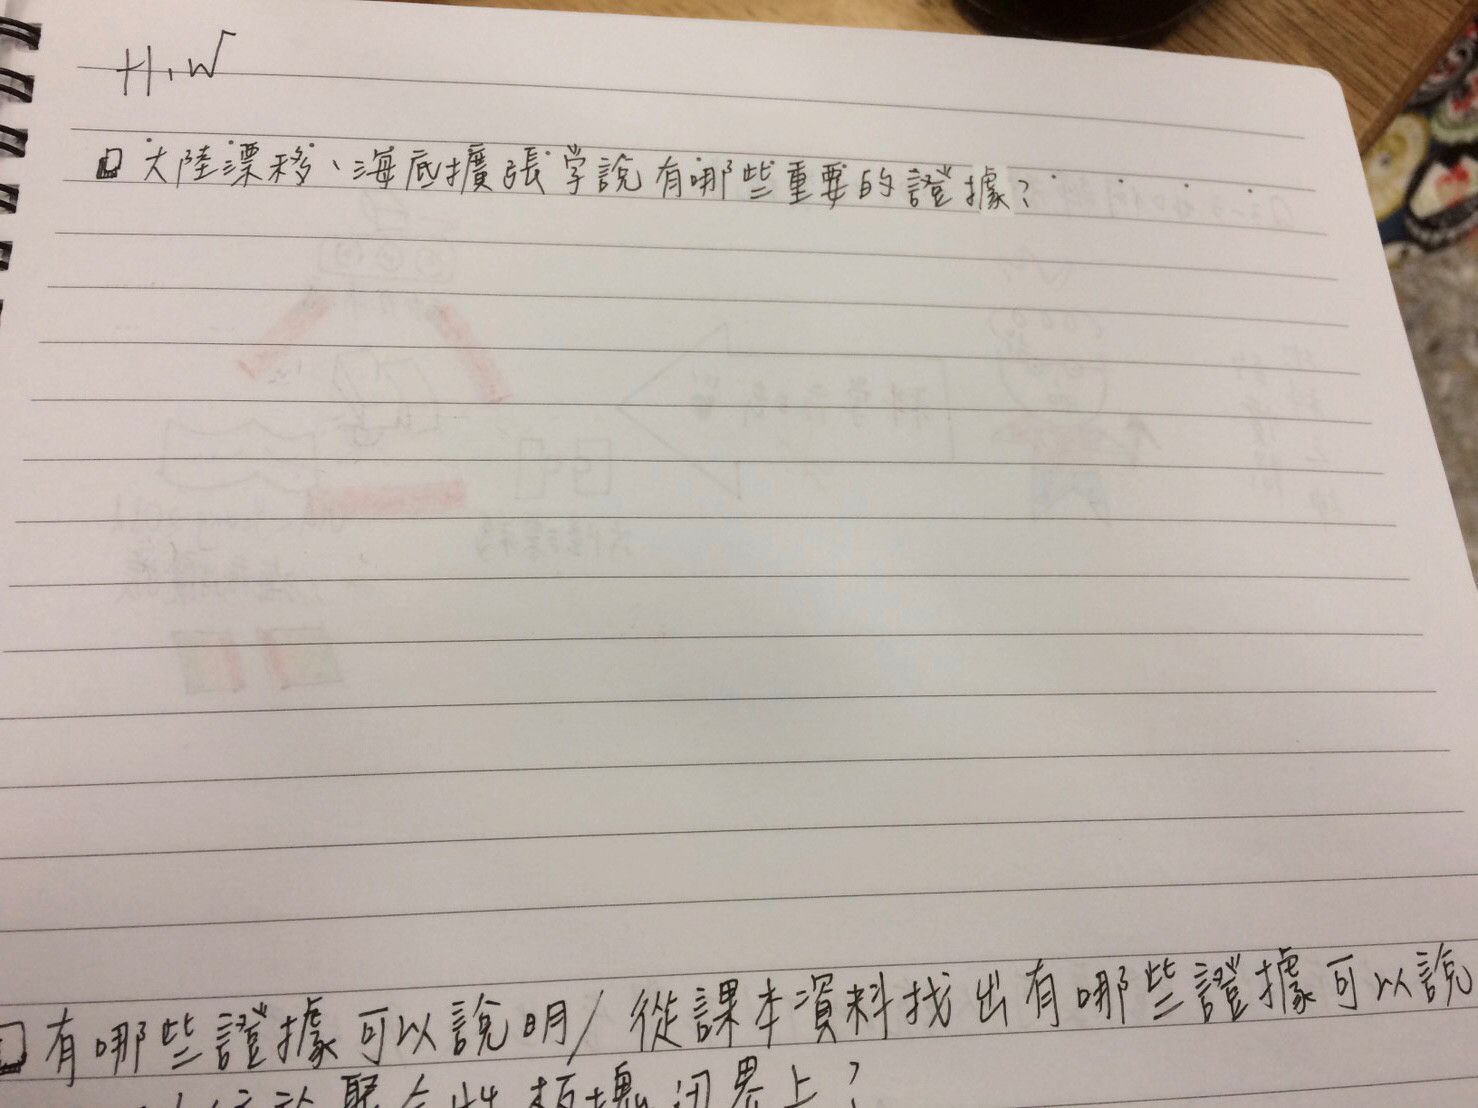 H.W
大陸漂移、海底擴張学說有哪些重要的證據？
有哪些證據可以說明/從課本資料找出有哪些證據可以說
聚合性板塊边界上？